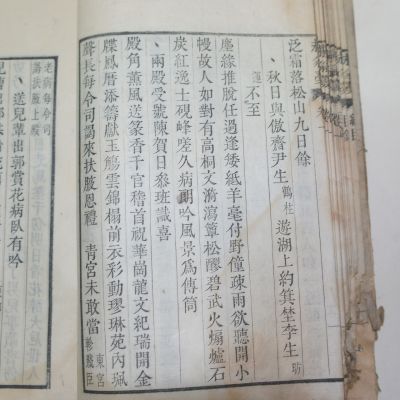 泛霜落松山九日餘
秋日與俞齋尹生鶴柱遊湖上約箕埜李生昉
運不至
塵緣推脫任過逢矮紙羊毫付野僮疎雨欲聽開小
慢故人如對有高桐文漪瀉簟松醪碧武火煽爐石
炭紅逸士硯峰嗟久病閒吟風景為傳筒
兩殿受號陳賀日叅班識喜
殿角薰風送篆香千官稽首視華崗龍文紀瑞開金
牒鳳曆添籌獻玉觴雲錦榻前衣彩動璆琳苑內珮
聲長每令司謁來扶腋恩禮 青宮未敢當東宮軫賤臣
老病每令司
謁扶腋上殿
送兒輩出郭賞花病臥有吟